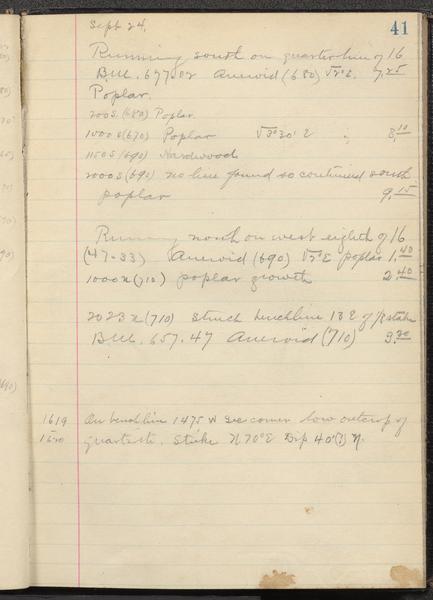 Sept 24. 41
Running south on quarterline of 16
B.M. 677.02 Aneroid (680) V2°E. 7.25
Poplar.
200 S. (680) Poplar.
1000 S (670) Poplar V3°30' E 8.10
1150 S (690) Hardwood
2000 S (690) no line found so continued south
poplar 9.15
Running north on west eighth of 16
(47-33) Aneroid (690) V2°E poplar 1.40
1000 N (710) poplar growth 2.40
2023 N (710) Struck benchline 13 E of stake
B.M. 657.47 Aneroid (710) 3.30
1619 On benchline 1475 W sec corner low outcrop of
1620 quartzite. Strike N 70° E Dip 40°(?) N.